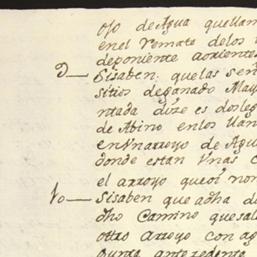 ojo de Agua quellam
enel Remate delos
deponiente aoriente
9 — Sisaben: quelas señ
sitios deganado May
ntada dize es dosleg
de Abino enlos llan
en Vnarroyo de Agu
donde estan Vnas c
el arroyo que oi nom
10 — Sisaben que adha de
dho Camino quesal
otro Arroyo con ag
punta antezedente